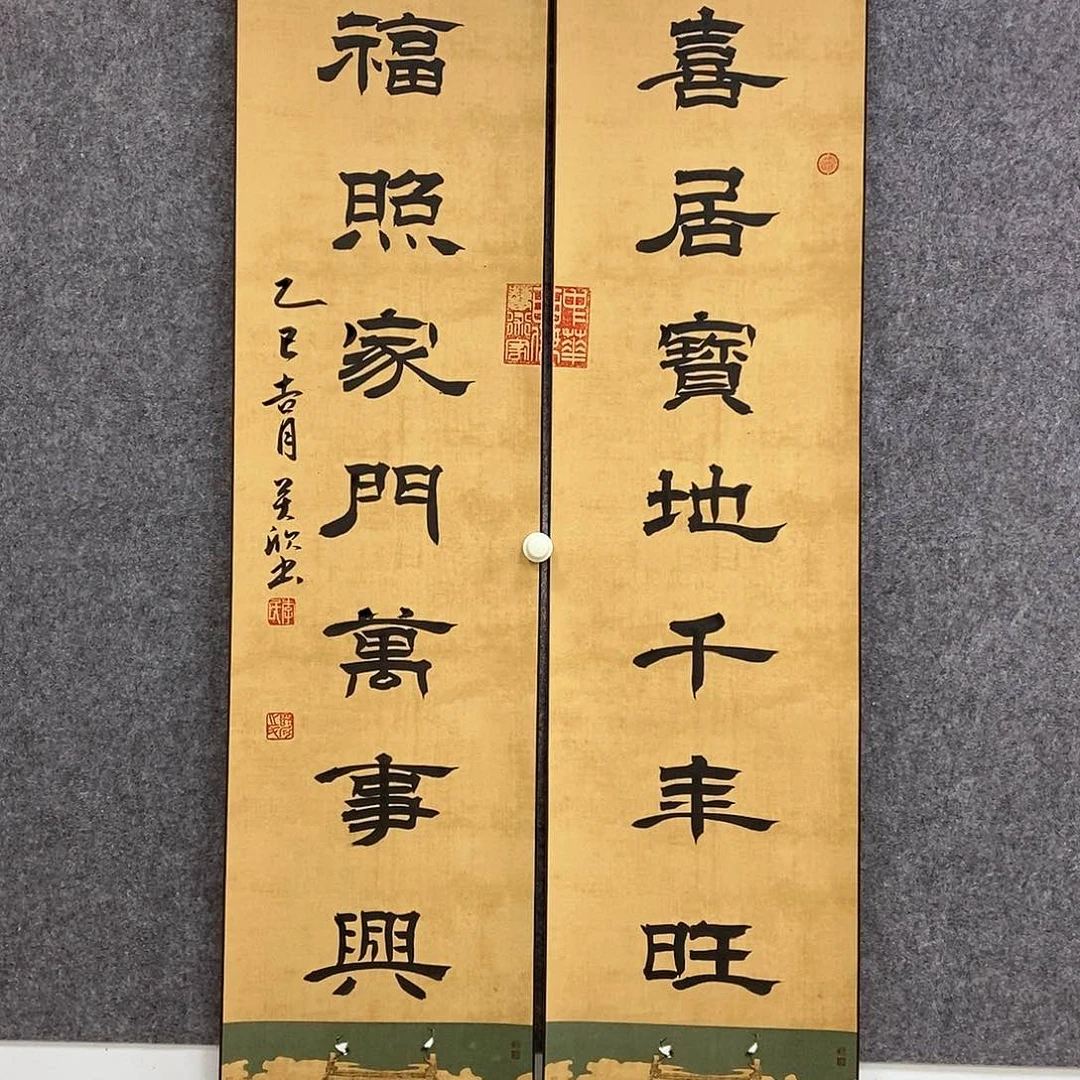 喜居寶地千年旺
福照家門萬事興
乙巳吉月英欣书